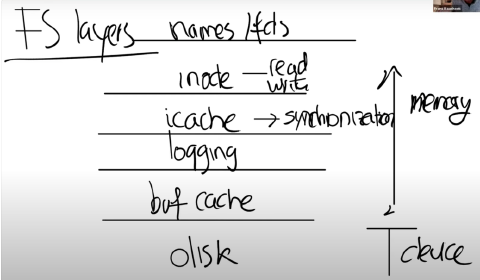 FS layers names/fds
inode — read
write
icache → synchronization
memory
logging
buf cache
disk
device